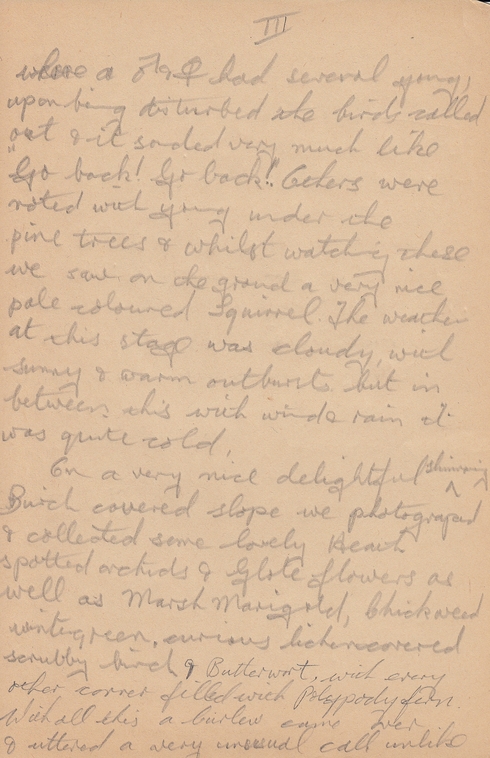 III
where a ♂ & ♀ had several young,
upon being disturbed the birds called
out & it sounded very much like
"Go back! Go back!" Others were
noted with young under the
pine trees & whilst watching these
we saw on the ground a very nice
pale coloured Squirrel. The weather
at this stage was cloudy, with
sunny & warm outbursts but in
between this with wind & rain it
was quite cold.
On a very nice delightful
Birch covered slope we photograped
& collected some lovely Heath
spotted orchids & Globe flowers as
well as Marsh Marigold, Chickweed
wintergreen, curious lichen covered
scrubby birch & Butterwort, with every
other corner filled with Polypody fern.
With all this a curlew came over
& uttered a very unusual call unlike